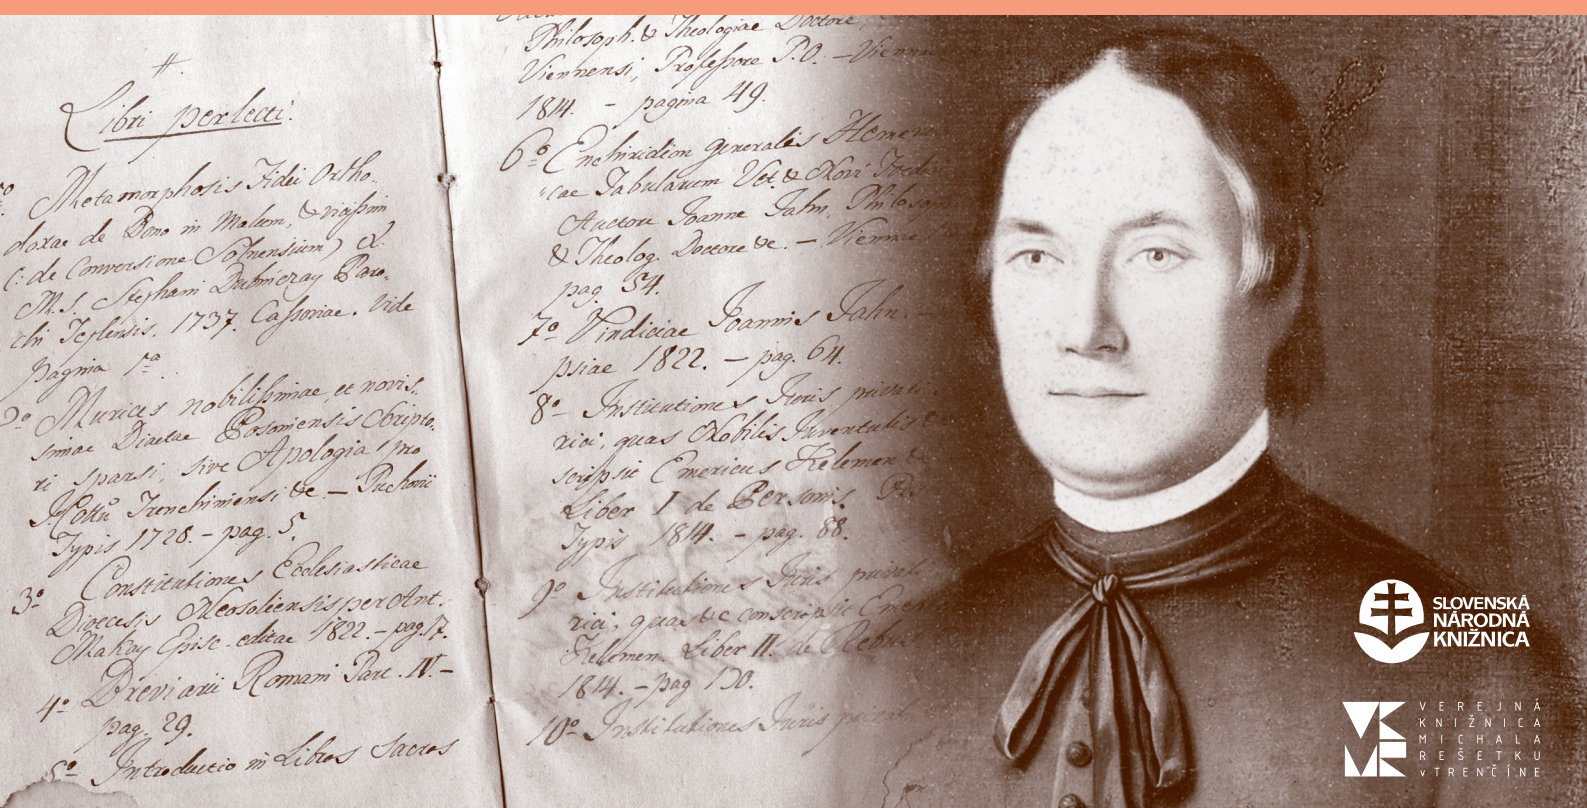 Libri perlecti.
Metamorphosis Fidei Ortho-
doxae de Bono in Malum, & vicissim
(: de Conversione Solnensium) &.
M.S. Stephani Dubniczay Paro-
chi Teplensis. 1737. Cassoviae. Vide
pagina 1ª
2º Murices nobilissimae, et novis-
simae Diaetae Posoniensis Scripto-
ri sparsi, sive Apologia pro
I. Cottu Trenchiniensi &c — Puchovii
Typis 1728. - pag. 5.
3º Constitutiones Ecclesiasticae
Dioecesis Neosoliensis per Ant.
Makay Episc. editae 1822. - pag. 17.
4º Breviarii Romani Part. IV. -
pag. 29.
5º Introductio in Libros Sacros
Philosoph. & Theologiae Doctore,
Viennensi, Professore P.O. — Viennae
1814. - pagina 49.
6º Enchiridion generalis Hermen
cae Tabularum Vet. & Novi Foed
Auctore Joanne Jahn, Philosoph
& Theolog. Doctore &c. — Viennae
pag. 54.
7º Vindiciae Joannis Jahn. -
psiae 1822. — pag. 64.
8º Institutiones Juris privati
rici, quas Nobilis Juventutis
scripsit Emericus Kelemen &
Liber I de Personis.
Typis 1814. - pag. 88.
9º Institutiones Juris privati
rici, quas &c conscripsit Eme
Kelemen. Liber II. de Rebus
1814. - pag 130.
10º Institutiones Juris privat
SLOVENSKÁ
NÁRODNÁ
KNIŽNICA
VEREJNÁ
KNIŽNICA
MICHALA
REŠETKU
v TRENČÍNE